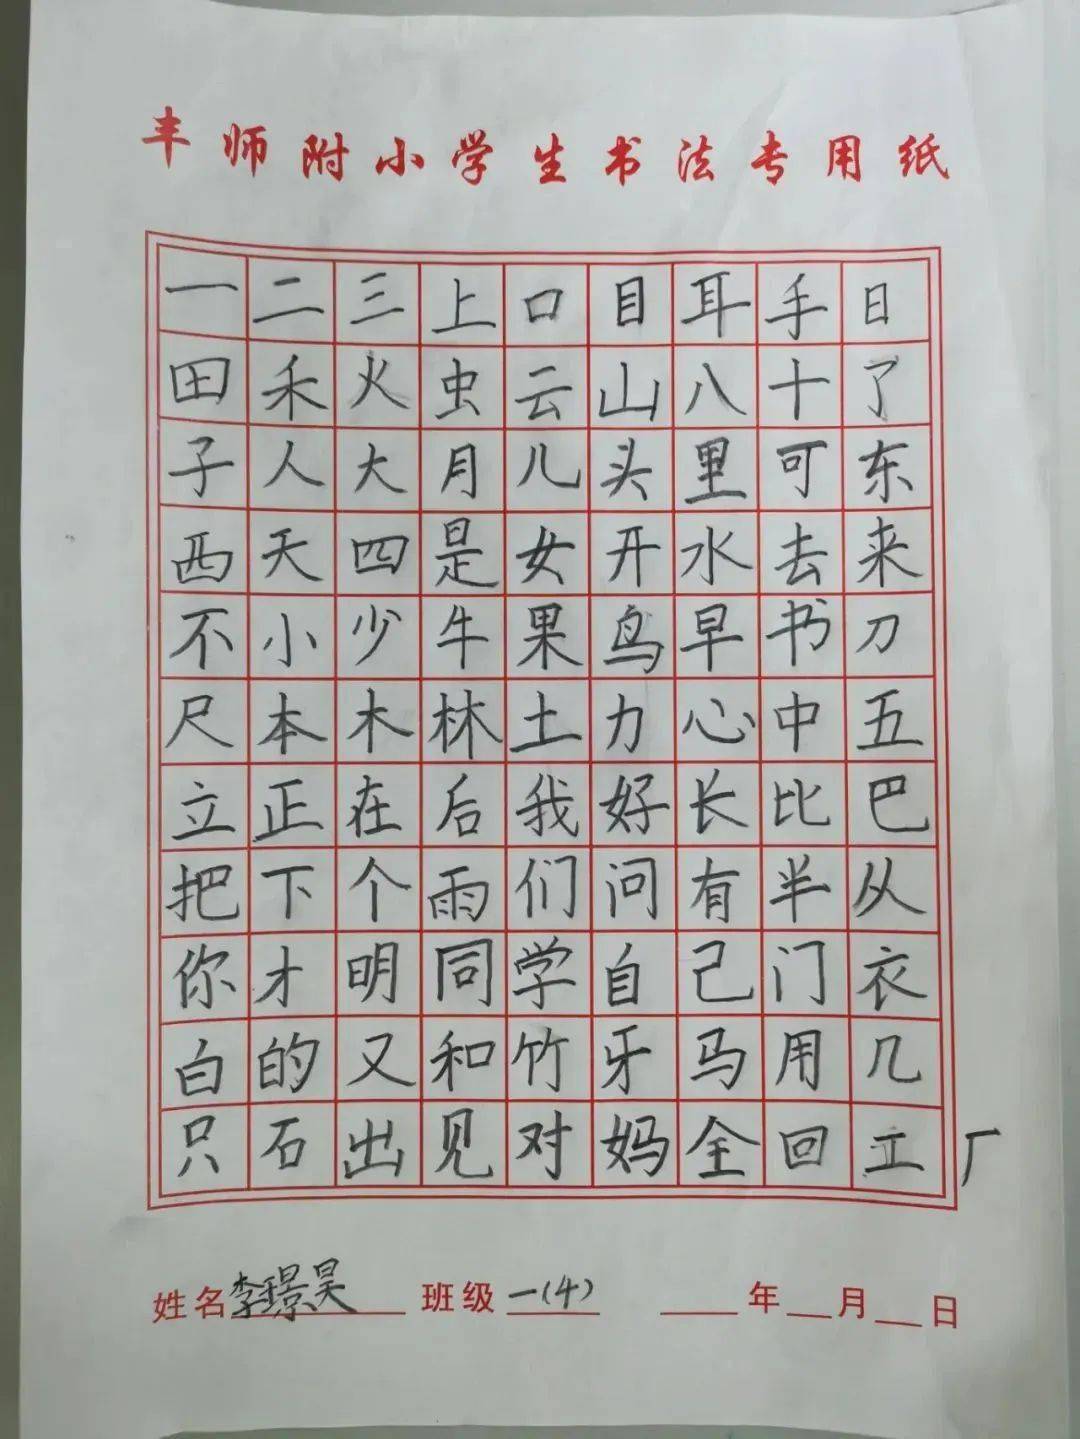 丰师附小学生书法专用纸
一二三上口目耳手日
田禾火虫云山八十了
子人大月儿头里可东
西天四是女开水去来
不小少牛果鸟早书刀
尺本木林土力心中五
立正在后我好长比巴
把下个雨们问有半从
你才明同学自己门衣
白的又和竹牙马用几
只石出见对妈全回工厂
姓名李璟昊 班级一(4) 年 月 日